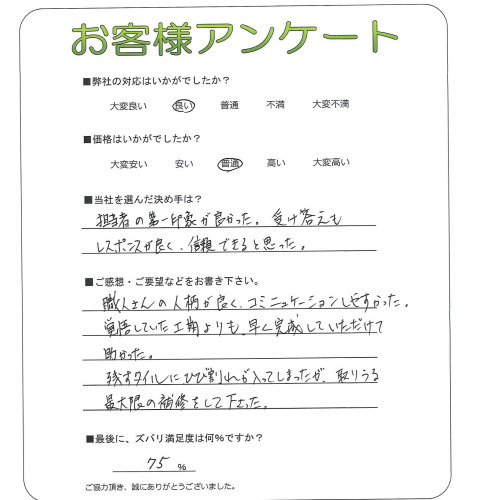 お客様アンケート
■弊社の対応はいかがでしたか？
大変良い 良い 普通 不満 大変不満
■価格はいかがでしたか？
大変安い 安い 普通 高い 大変高い
■当社を選んだ決め手は？
担当者の第一印象が良かった。受け答えも
レスポンスが良く、信頼できると思った。
■ご感想・ご要望などをお書き下さい。
職人さんの人柄が良く、コミュニケーションしやすかった。
覚悟していた工期よりも、早く完成していただけて
助かった。
残すタイルにひび割れが入ってしまったが、取りうる
最大限の補修をして下さった。
■最後に、ズバリ満足度は何%ですか？
75 %
ご協力頂き、誠にありがとうございました。